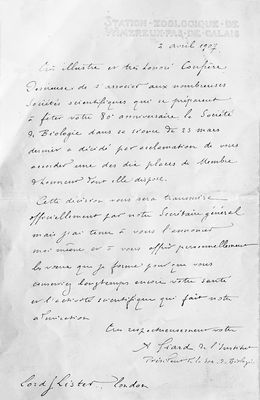 STATION·ZOOLOGIQUE·DE
WIMEREUX·PAS·DE·CALAIS
2 avril 1907
Très illustre et très honoré Confrère
Désireuse de s'associer aux nombreuses
Sociétés scientifiques qui se préparent
à fêter votre 80e anniversaire la Société
de Biologie dans sa séance du 23 mars
dernier a décidé par acclamation de vous
accorder une des dix places de Membre
d'honneur dont elle dispose.
Cette décision vous sera transmise
officiellement par notre Secrétaire général
mais j'ai tenu à vous l'annoncer
moi même et à vous offrir personnellement
les vœux que je forme pour que vous
conserviez longtemps encore votre santé
et l'activité scientifique qui fait notre
admiration
Très respectueusement votre
A Giard de l'Institut
Président de la Soc. de Biologie
Lord J Lister, London